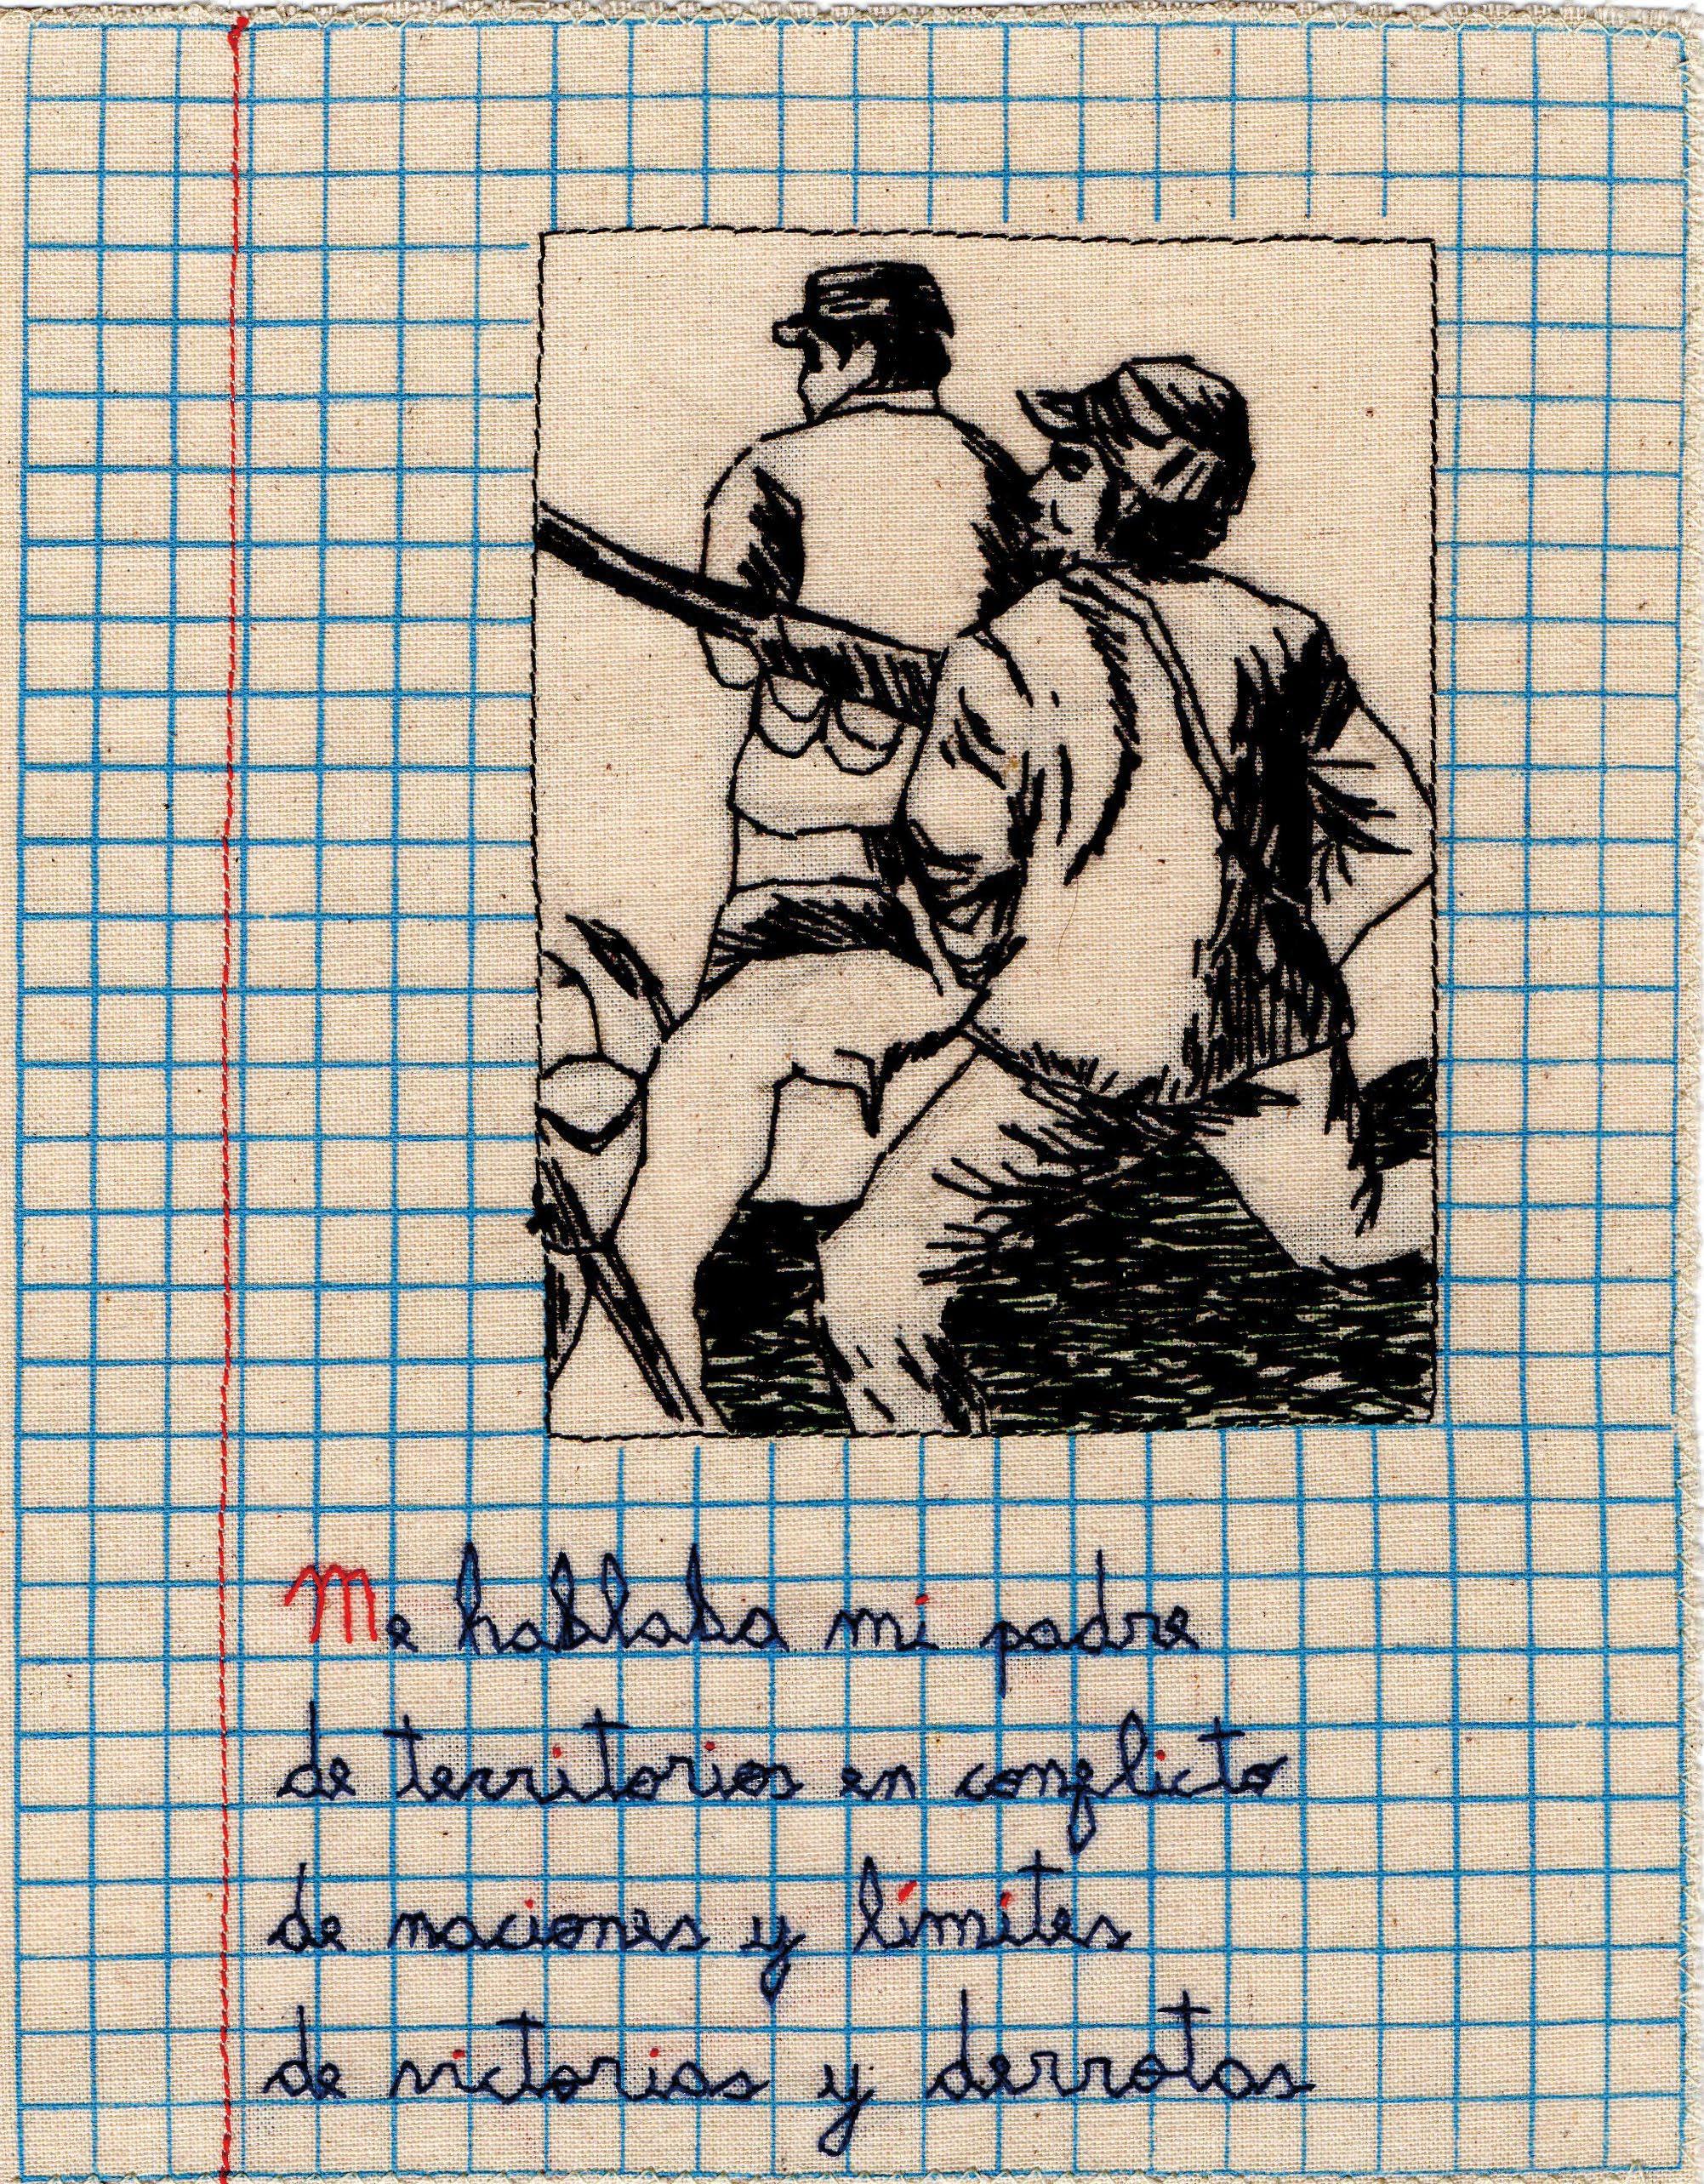 Me hablaba mi padre
de territorios en conflicto
de naciones y límites
de victorias y derrotas